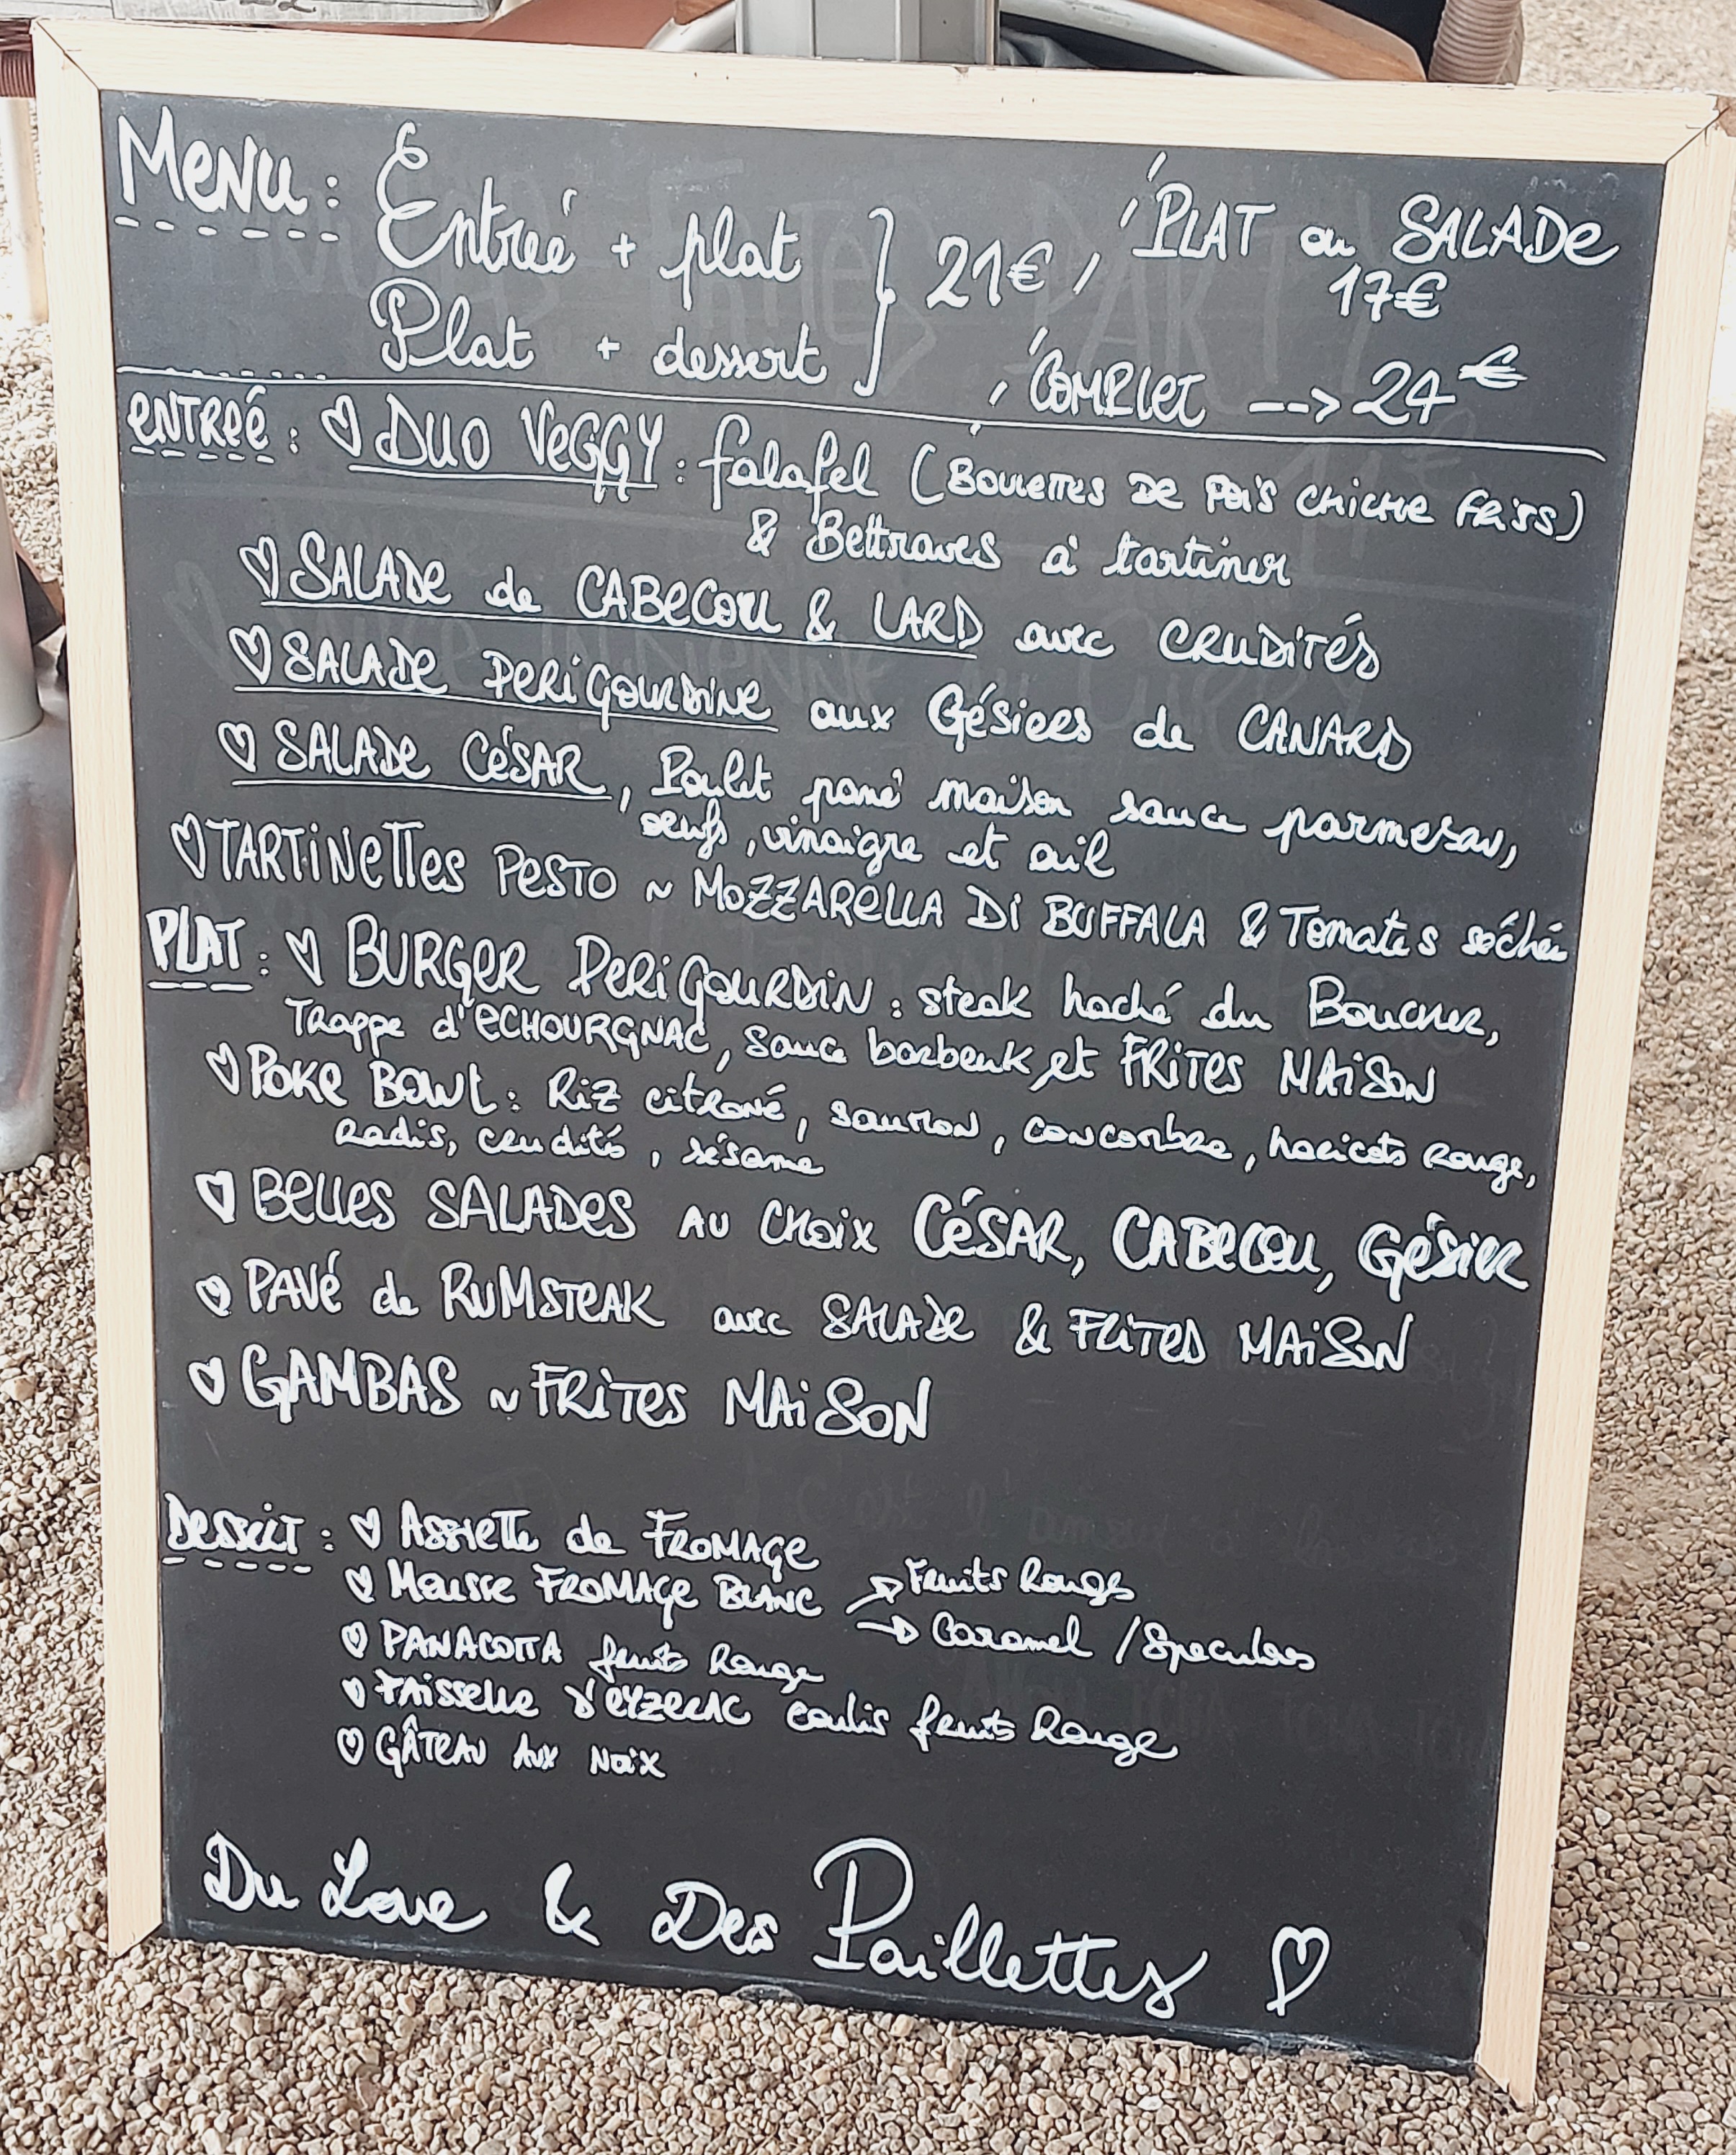 MENU : Entreé + plat } 21€ / PLAT ou SALADE
17€
Plat + dessert / COMPLET --> 24€
ENTREÉ : ♡ DUO VEGGY : falafel (BOULETTES DE POIS CHICHE FRISS)
& Bettraves à tartiner
♡ SALADE de CABECOU & LARD avec CRUDITÉS
♡ SALADE PERIGOURDINE aux Gésiers de CANARD
♡ SALADE CÉSAR, Poulet pané maison sauce parmesan,
oeufs, vinaigre et ail
♡ TARTINETTES PESTO ~ MOZZARELLA DI BUFFALA & Tomates séchée
PLAT : ♡ BURGER PERIGOURDIN : steak haché du Boucher,
Trappe d'ECHOURGNAC, Sauce barbeuk et FRITES MAISON
♡ POKE BOWL : Riz citroné, saumon, concombre, haricots Rouge,
Radis, crudités, sésame
♡ BELLES SALADES AU CHOIX CÉSAR, CABECOU, GÉSIER
♡ PAVÉ de RUMSTEAK avec SALADE & FRITES MAISON
♡ GAMBAS ~ FRITES MAISON
DESSERT : ♡ ASSIETTE de FROMAGE
♡ Mousse FROMAGE BLANC → Fruits Rouges
→ Caramel / Speculos
♡ PANACOTTA fruits Rouge
♡ FAISSELLE D'EYZERAC coulis fruits Rouge
♡ GÂTEAU AUX NOIX
Du Love & Des Paillettes ♡